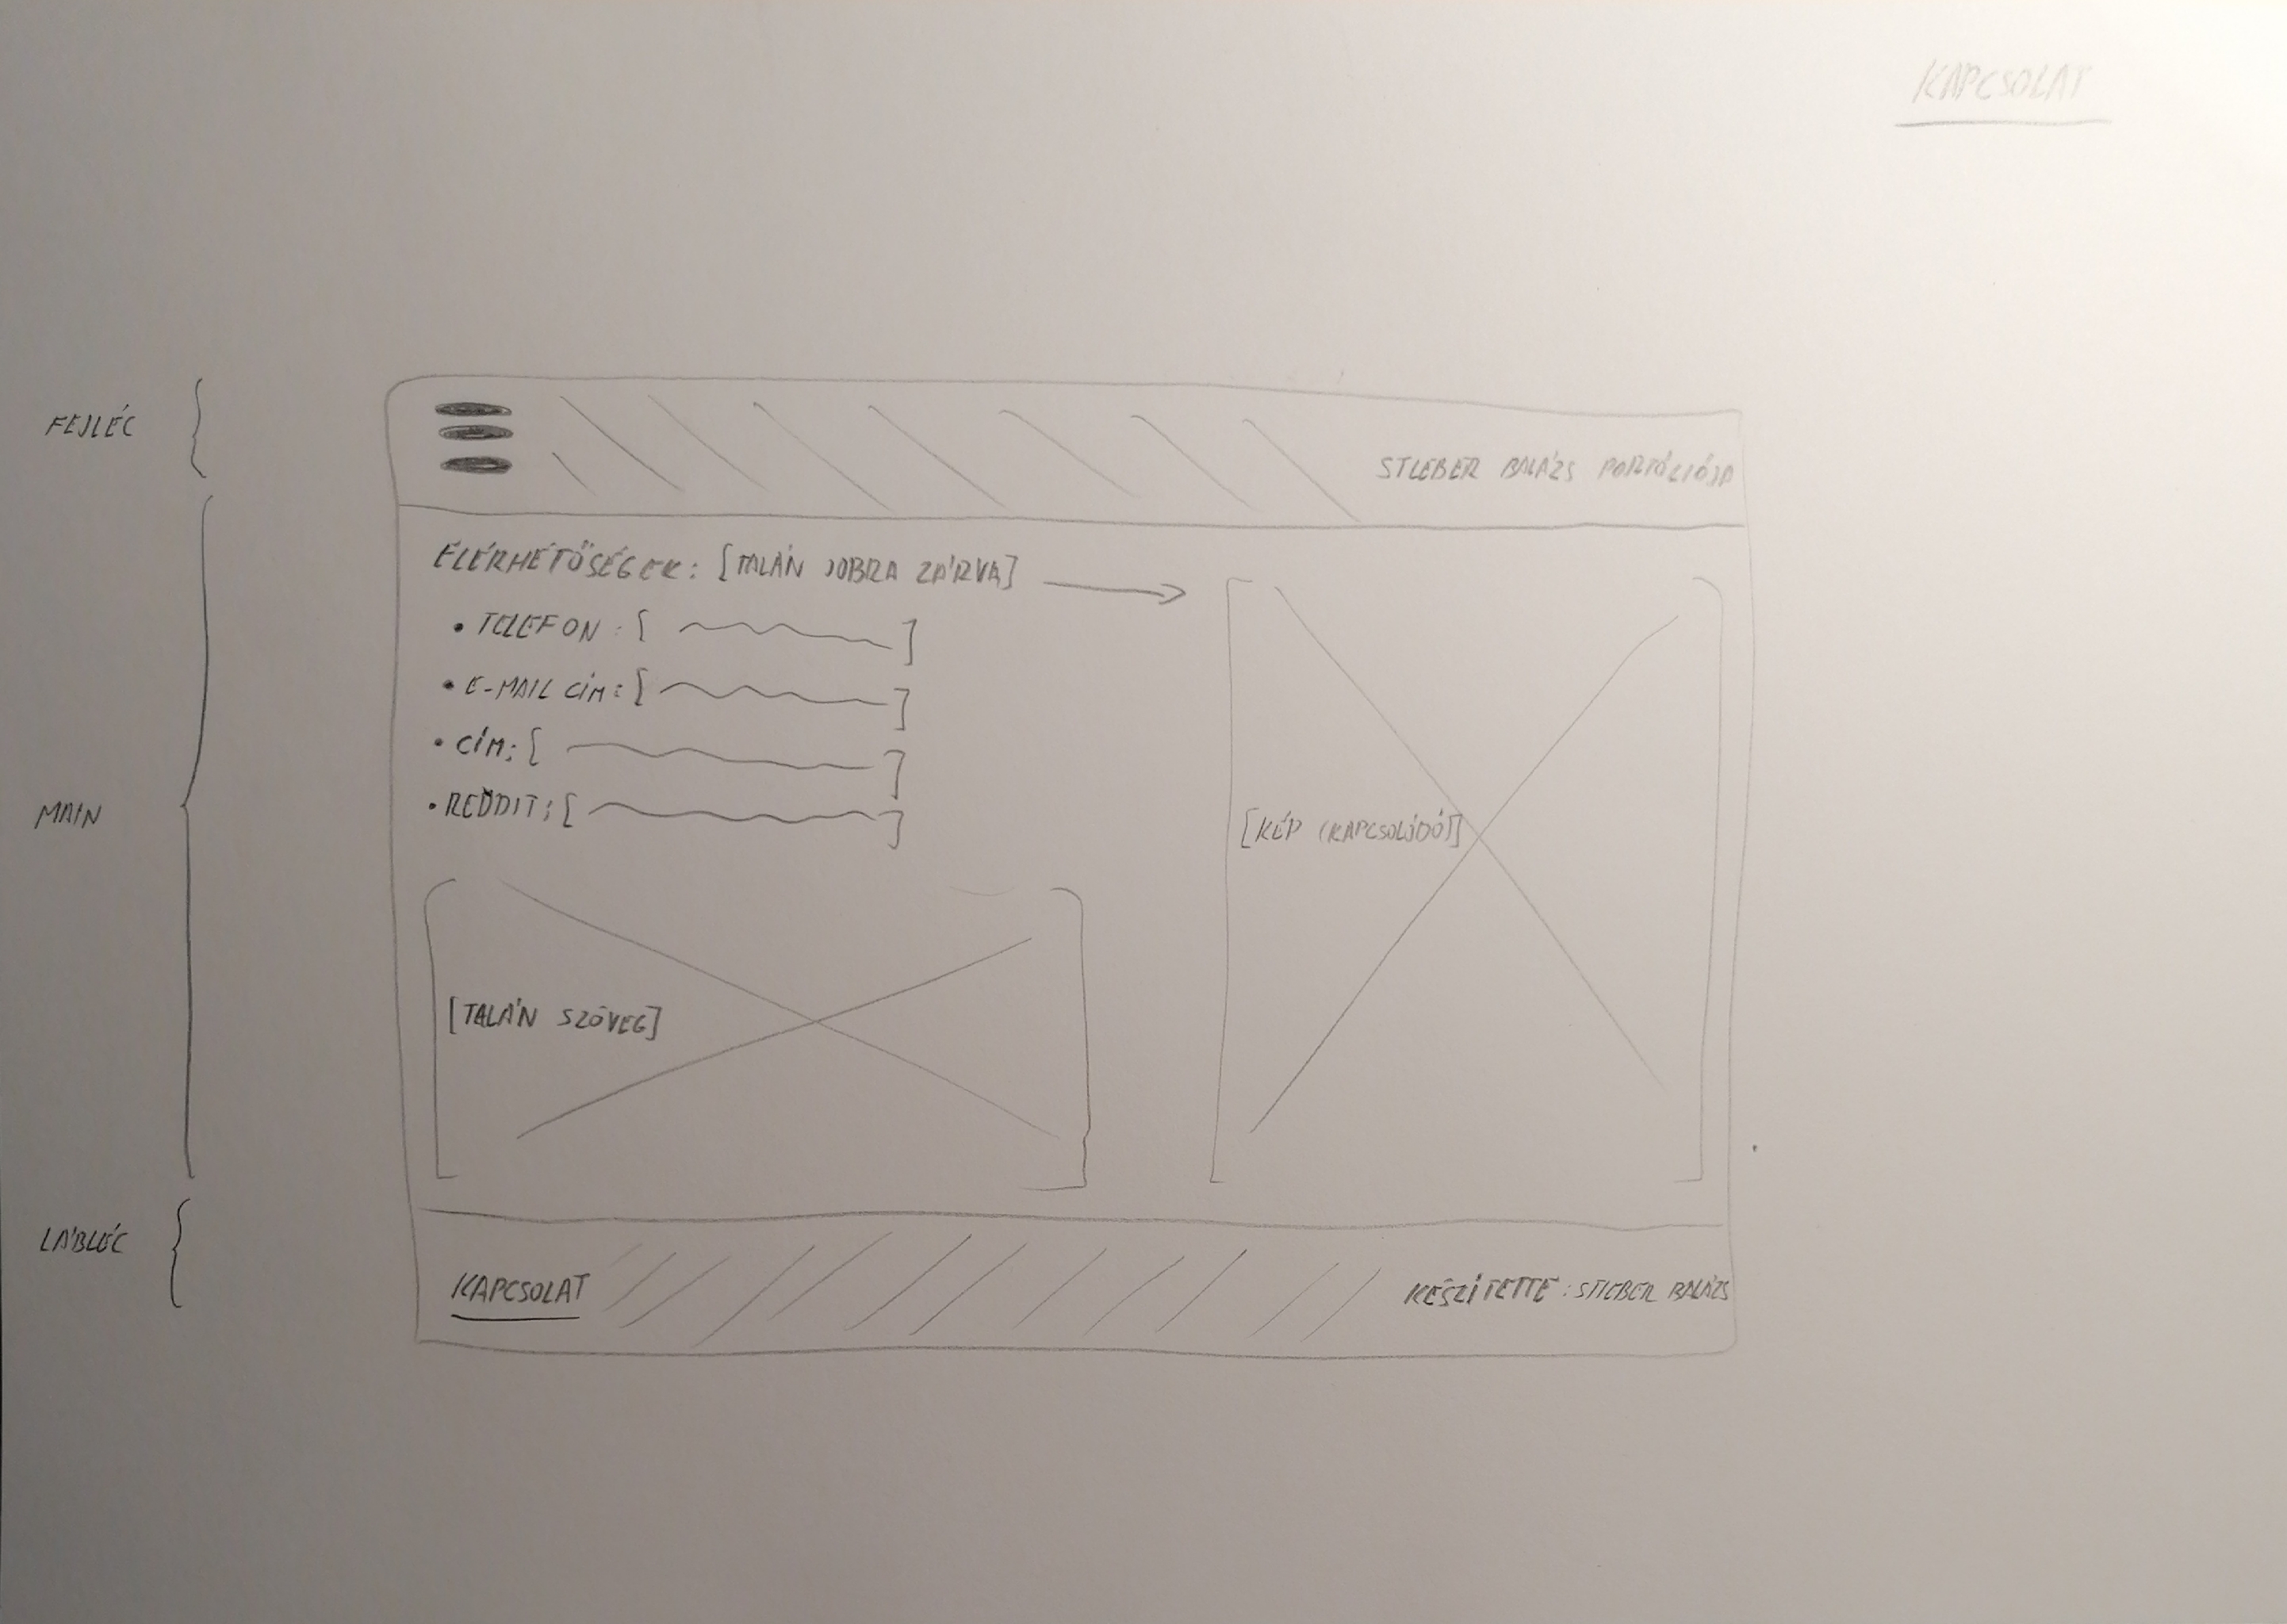 KAPCSOLAT
FEJLÉC
STIEBER BALÁZS PORTÓLIÓJA
ELÉRHETŐSÉGEK: [TALÁN JOBRA ZÁRVA]
• TELEFON: [ ]
• E-MAIL CÍM: [ ]
• CÍM: [ ]
• REDDIT: [ ]
MAIN
[KÉP (KAPCSOLÓDÓ)]
[TALÁN SZÖVEG]
LÁBLÉC
KAPCSOLAT
KÉSZÍTETTE: STIEBER BALÁZS